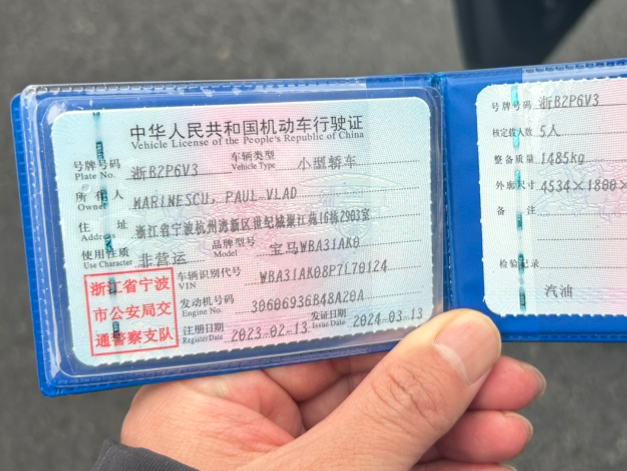 中华人民共和国机动车行驶证
Vehicle License of the People's Republic of China
号牌号码 浙B2P6V3 车辆类型 小型轿车
Plate No. Vehicle Type
所有人 MARINESCU, PAUL-VLAD
Owner
住址 浙江省宁波杭州湾新区世纪城紫江苑16栋2903室
Address
使用性质 非营运 品牌型号 宝马WBA31AK0
Use Character Model
浙江省宁波
市公安局交
通警察支队
车辆识别代号 WBA31AK08P7L70124
VIN
发动机号码 30606936B48A20A
Engine No.
注册日期 2023-02-13 发证日期 2024-03-13
Register Date Issue Date
号牌号码 浙B2P6V3
核定载人数 5人
整备质量 1485kg
外廓尺寸 4534×1800×
备注
检验记录
汽油